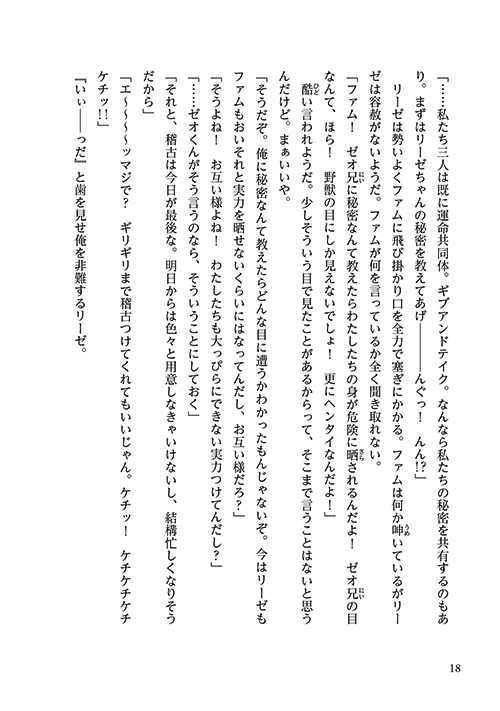 「……私たち三人は既に運命共同体。ギブアンドテイク。なんなら私たちの秘密を共有するのもあ
り。まずはリーゼちゃんの秘密を教えてあげ――――んぐっ！　んん!?」
　リーゼは勢いよくファムに飛び掛かり口を全力で塞ぎにかかる。ファムは何か呻いているがリー
ゼは容赦がないようだ。ファムが何を言っているか全く聞き取れない。
「ファム！　ゼオ兄に秘密なんて教えたらわたしたちの身が危険に晒されるんだよ！　ゼオ兄の目
なんて、ほら！　野獣の目にしか見えないでしょ！　更にヘンタイなんだよ！」
　酷い言われようだ。少しそういう目で見たことがあるからって、そこまで言うことはないと思う
んだけど。まぁいいや。
「そうだぞ。俺に秘密なんて教えたらどんな目に遭うかわかったもんじゃないぞ。今はリーゼも
ファムもおいそれと実力を晒せないくらいにはなってんだし、お互い様だろ？」
「そうよね！　お互い様よね！　わたしたちも大っぴらにできない実力つけてんだし？」
「……ゼオくんがそう言うのなら、そういうことにしておく」
「それと、稽古は今日が最後な。明日からは色々と用意しなきゃいけないし、結構忙しくなりそう
だから」
「エ～～～～ッマジで？　ギリギリまで稽古つけてくれてもいいじゃん。ケチッ！　ケチケチケチ
ケチッ!!」
『いぃ――っだ』と歯を見せ俺を非難するリーゼ。
18